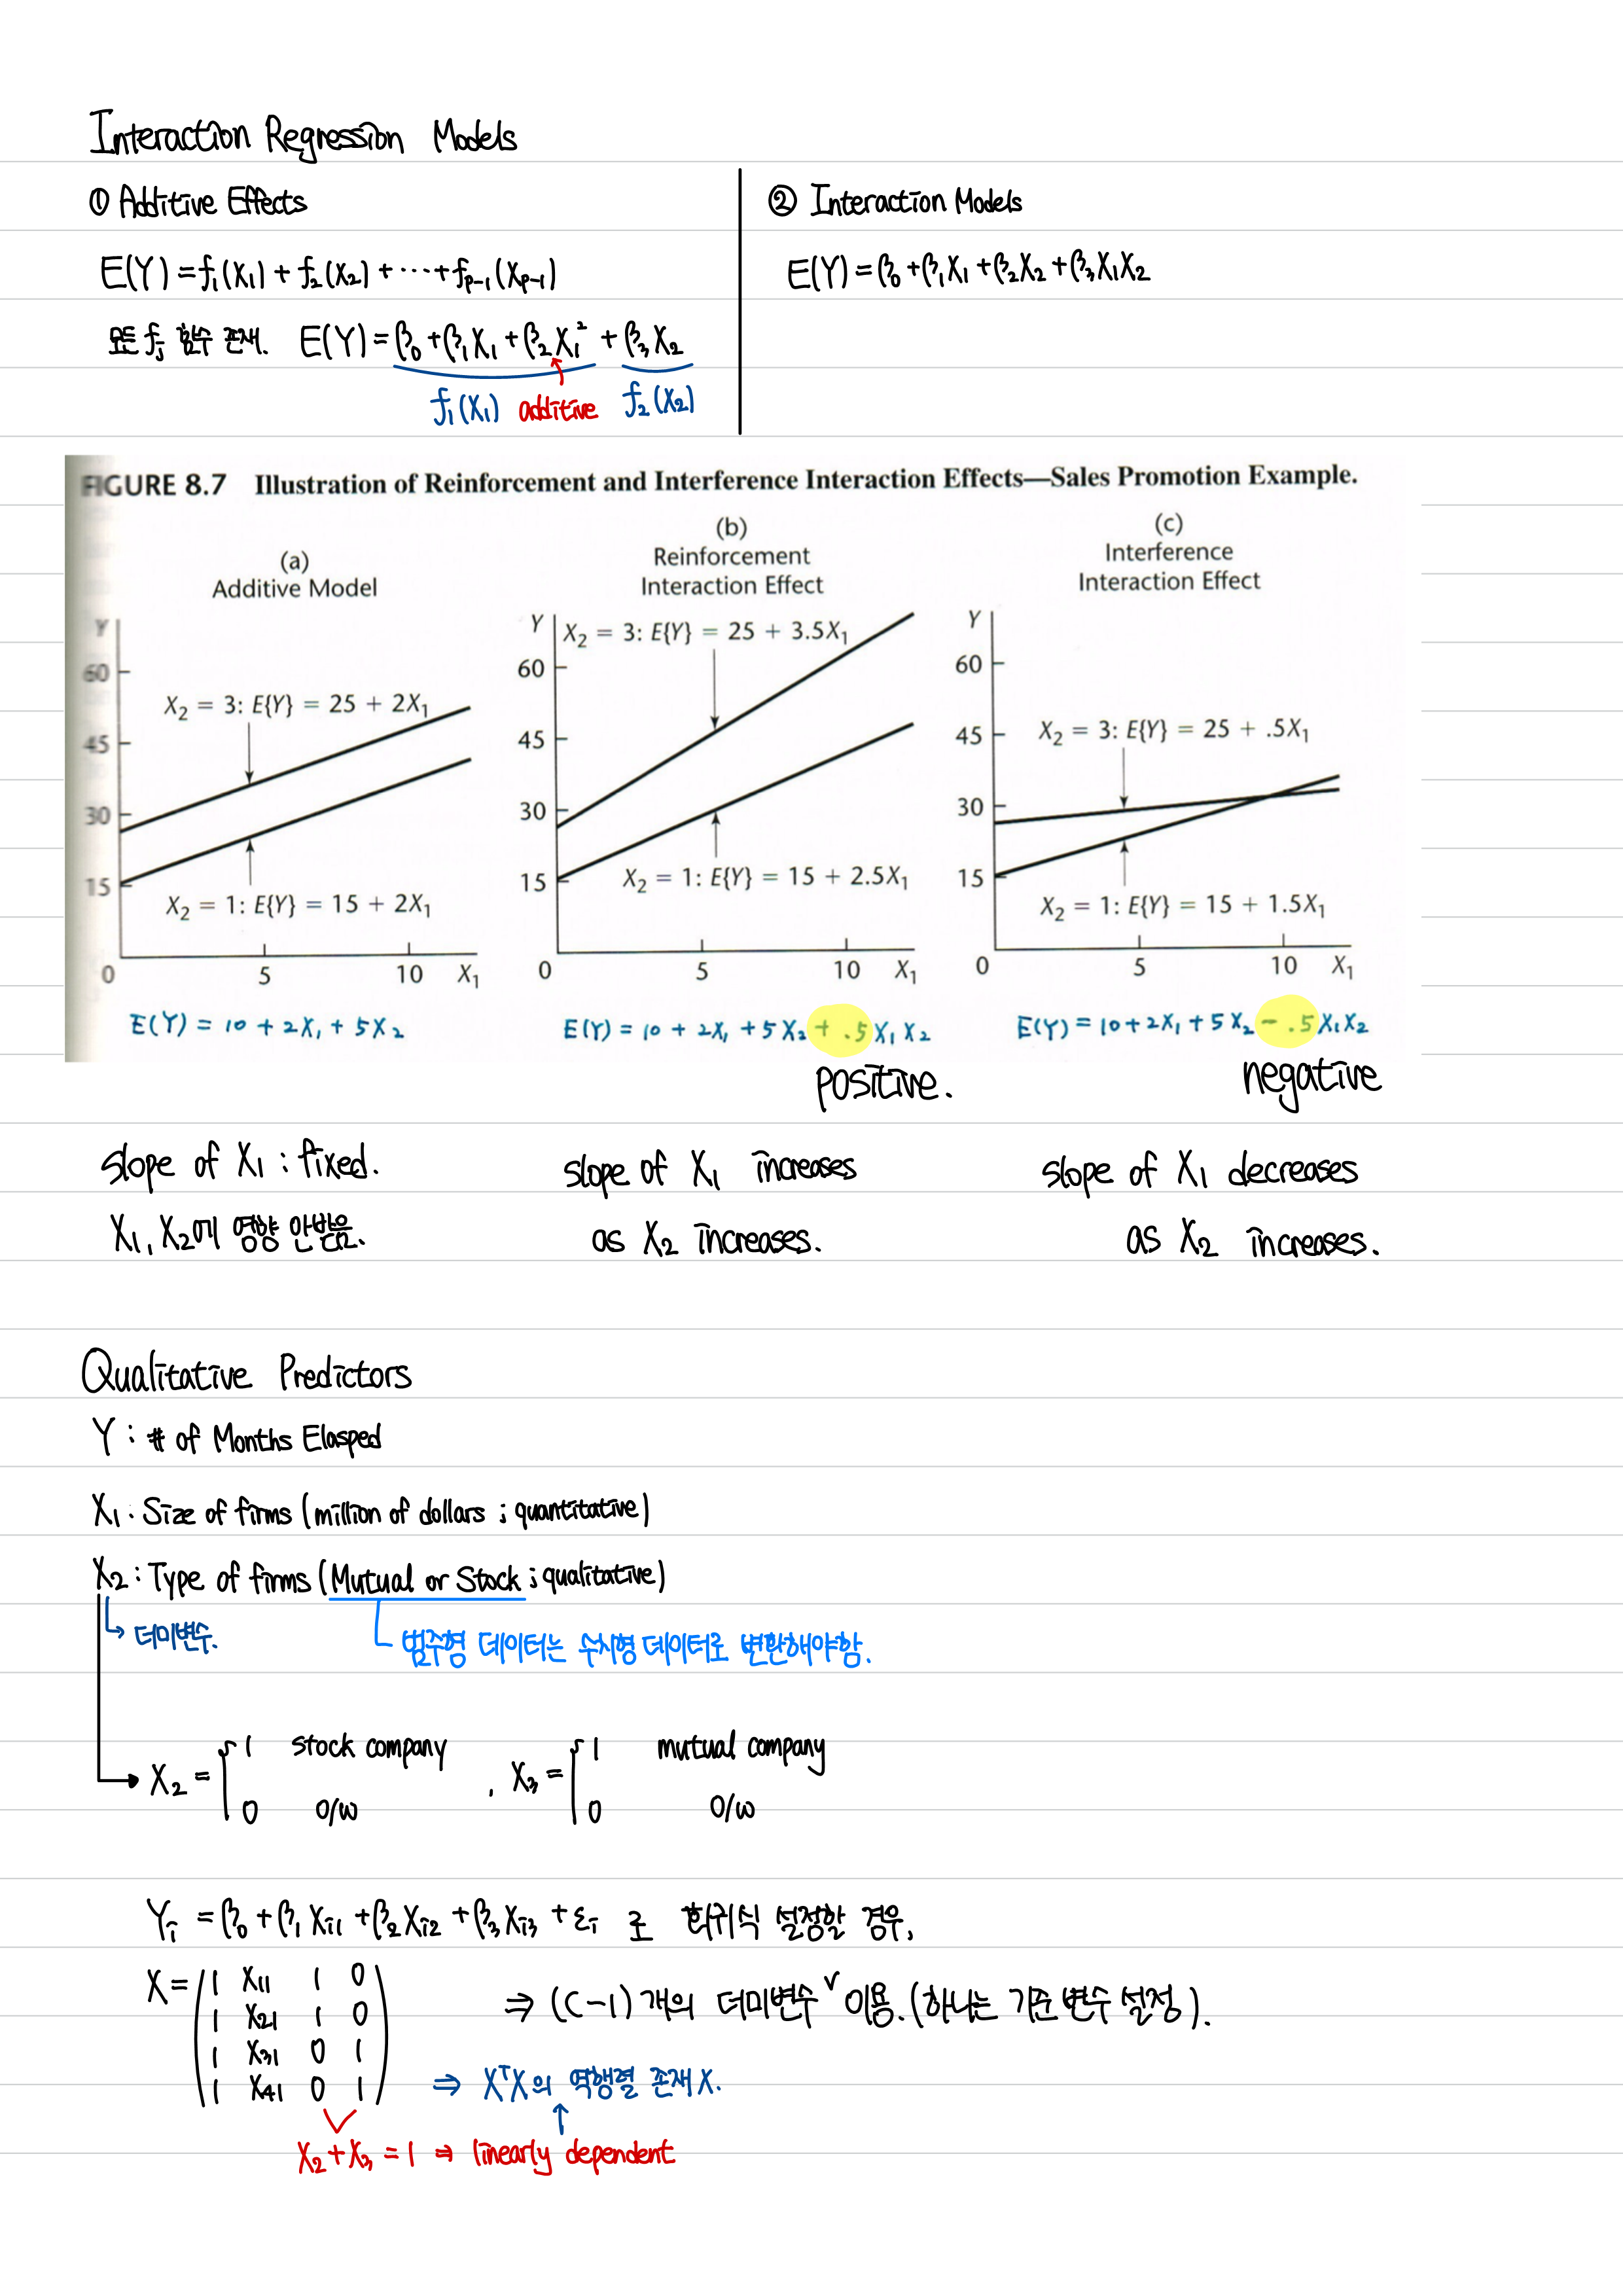 Interaction Regression Models
① Additive Effects
E(Y) = f₁(X₁) + f₂(X₂) + ⋯ + fₚ₋₁(Xₚ₋₁)
모든 fⱼ 함수 존재. E(Y) = β₀ + β₁X₁ + β₂X₁² + β₃X₂
f₁(X₁) additive f₂(X₂)
② Interaction Models
E(Y) = β₀ + β₁X₁ + β₂X₂ + β₃X₁X₂
FIGURE 8.7 Illustration of Reinforcement and Interference Interaction Effects—Sales Promotion Example.
(a)
Additive Model
Y
60
45
30
15
0
5
10
X₁
X₂ = 3: E{Y} = 25 + 2X₁
X₂ = 1: E{Y} = 15 + 2X₁
E(Y) = 10 + 2X₁ + 5X₂
(b)
Reinforcement
Interaction Effect
Y
60
45
30
15
0
5
10
X₁
X₂ = 3: E{Y} = 25 + 3.5X₁
X₂ = 1: E{Y} = 15 + 2.5X₁
E(Y) = 10 + 2X₁ + 5X₂ + .5X₁X₂
positive.
(c)
Interference
Interaction Effect
Y
60
45
30
15
0
5
10
X₁
X₂ = 3: E{Y} = 25 + .5X₁
X₂ = 1: E{Y} = 15 + 1.5X₁
E(Y) = 10 + 2X₁ + 5X₂ − .5X₁X₂
negative
slope of X₁ : fixed.
X₁, X₂에 영향 안받음.
slope of X₁ increases
as X₂ increases.
slope of X₁ decreases
as X₂ increases.
Qualitative Predictors
Y : # of Months Elasped
X₁ : Size of firms (million of dollars ; quantitative)
X₂ : Type of firms (Mutual or Stock ; qualitative)
↳ 더미변수.
범주형 데이터는 수치형 데이터로 변환해야함.
X₂ = { 1 stock company
0 o/w
, X₃ = { 1 mutual company
0 o/w
Yᵢ = β₀ + β₁Xᵢ₁ + β₂Xᵢ₂ + β₃Xᵢ₃ + εᵢ 로 회귀식 설정할 경우,
X = ( 1 X₁₁ 1 0
1 X₂₁ 1 0
1 X₃₁ 0 1
1 X₄₁ 0 1 )
⇒ (C−1) 개의 더미변수 ∨ 이용. (하나는 기준 변수 설정).
⇒ XᵀX의 역행렬 존재 X.
X₂ + X₃ = 1 ⇒ linearly dependent